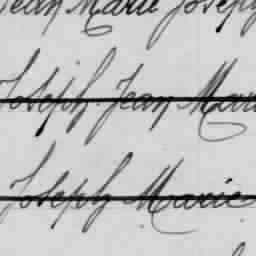 Jean Marie Joseph
Joseph Jean Mari
Joseph Marie